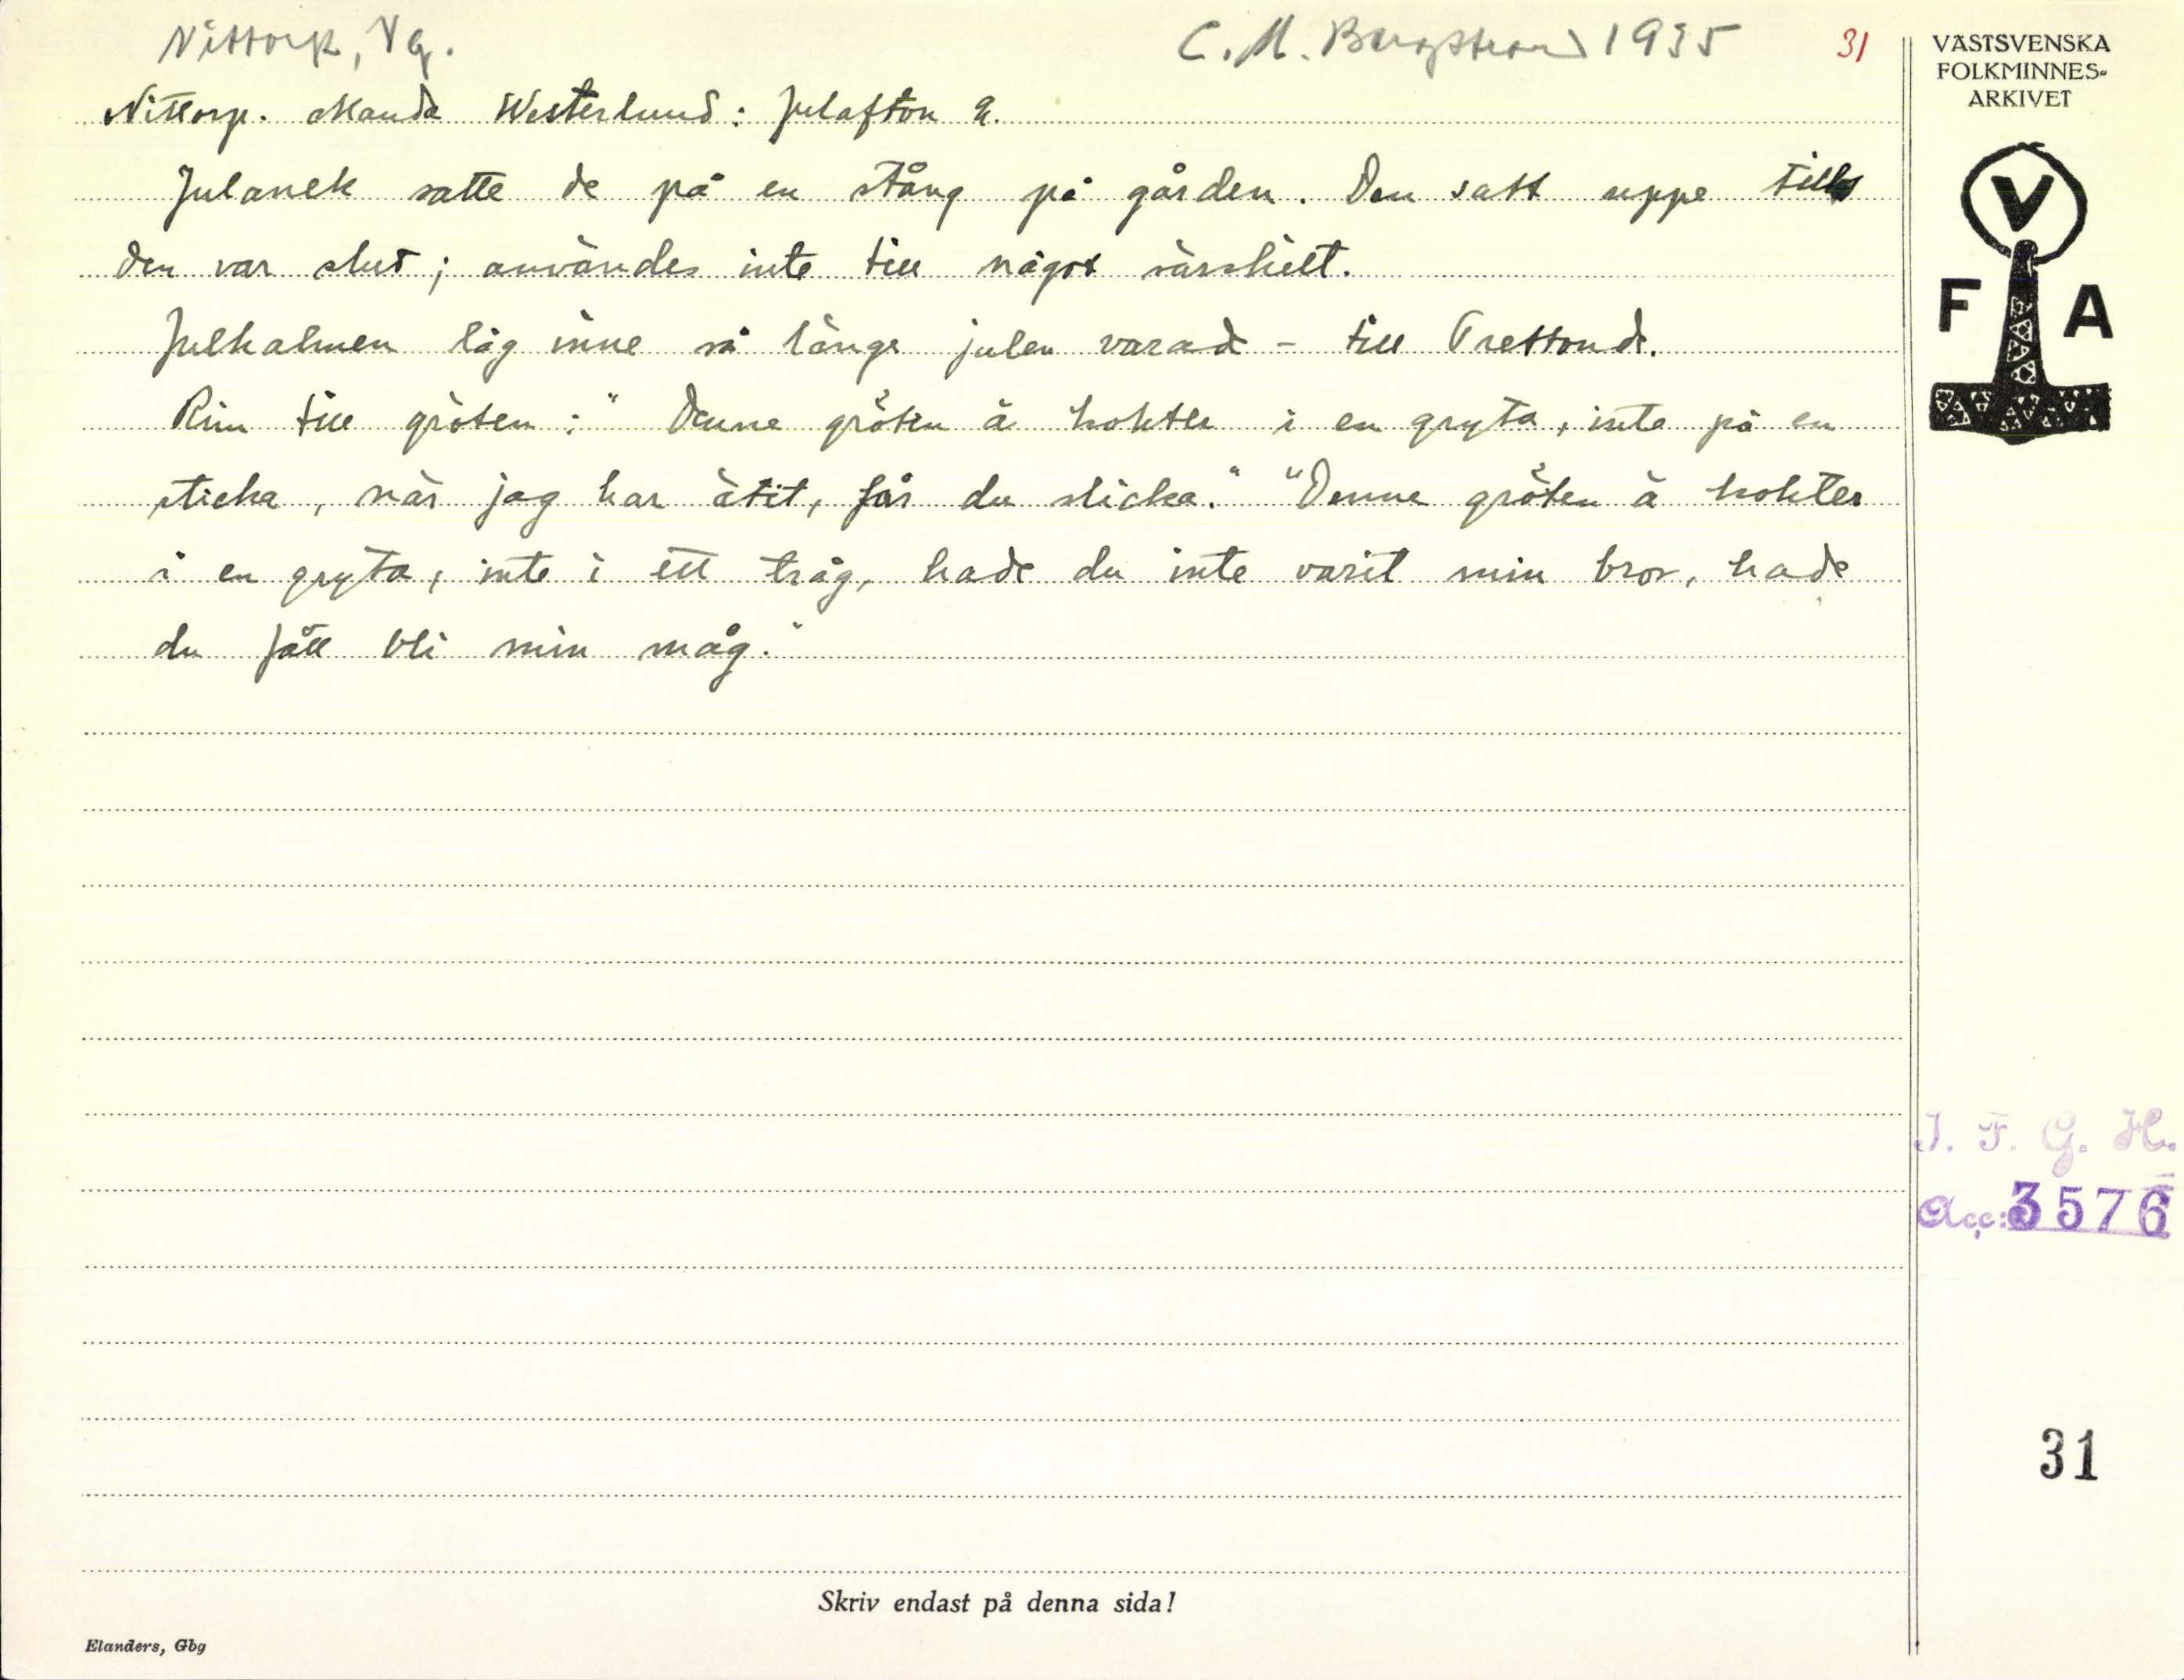 Nittorp, Vg.
C. M. Bergstrand 1935
31
Nittorp. Manda Westerlund: Julafton 2.
Julanek satte de på en stång på gården. Den satt uppe tills
den var slut; användes inte till något särskilt.
Julhalmen låg inne så länge julen varade - till Trettond.
Rim till gröten: "Denne gröten ä kokter i en gryta, inte på en
sticka, när jag har ätit, får du slicka." "Denne gröten ä kokter
i en gryta, inte i ett tråg, hade du inte varit min bror, hade
du fått bli min måg."
VÄSTSVENSKA
FOLKMINNES-
ARKIVET
V
F A
I. F. G. H.
Acc: 3576
31
Skriv endast på denna sida!
Elanders, Gbg